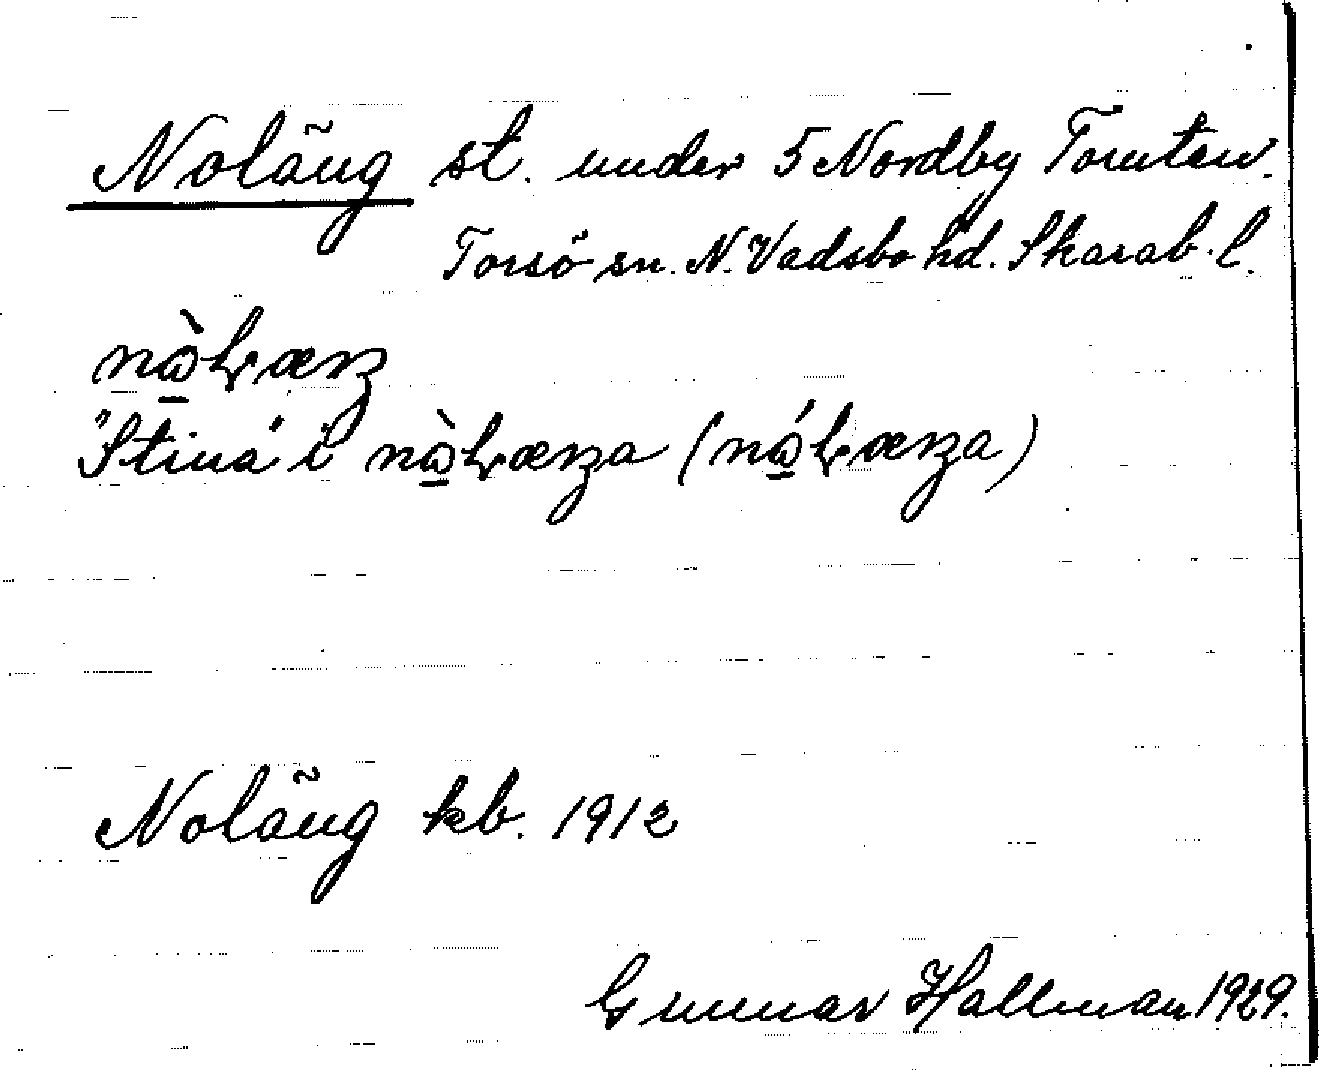 Noläng st. under 5 Nordby Tomten.
Torsö sn. N. Vadsbo hd. Skarab. l.
nὰⱡæŋ
"Stina" i nὰⱡæŋa (náⱡæŋa)
Noläng kb. 1912
Gunnar Hallman 1929.